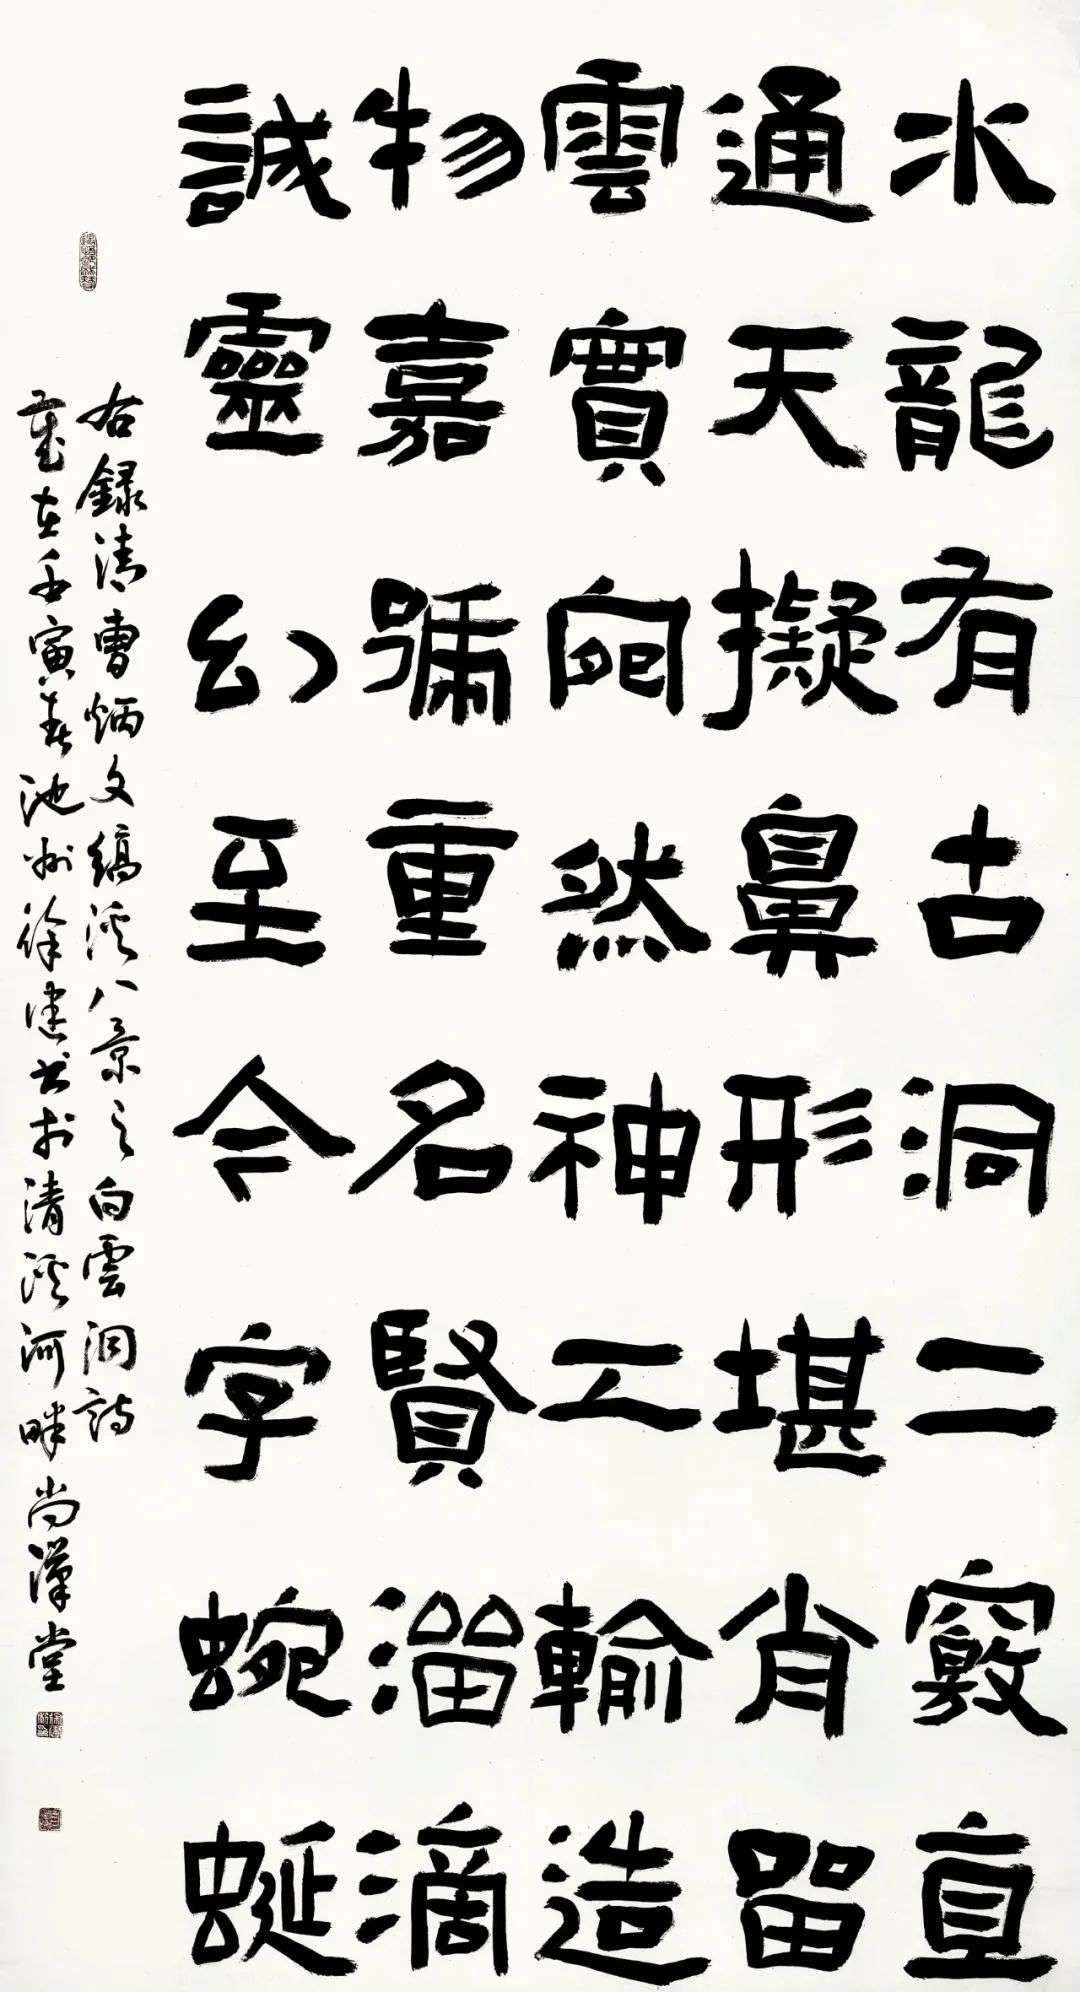 水龍有古洞二竅直
通天擬鼻形堪肖留
雲實宛然神工輸造
物嘉號重名賢溜滴
誠靈幻至今字蜿蜒
右錄清曹炳文縞溪八景之白雲洞詩
歲在壬寅春池州徐建書於清溪河畔尚漢堂